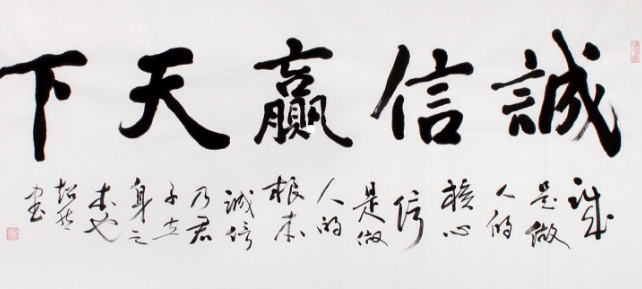 誠信贏天下
诚
是做
人的
核心
信
是做
人的
根本
誠信
乃君
子立
身之
本也
书